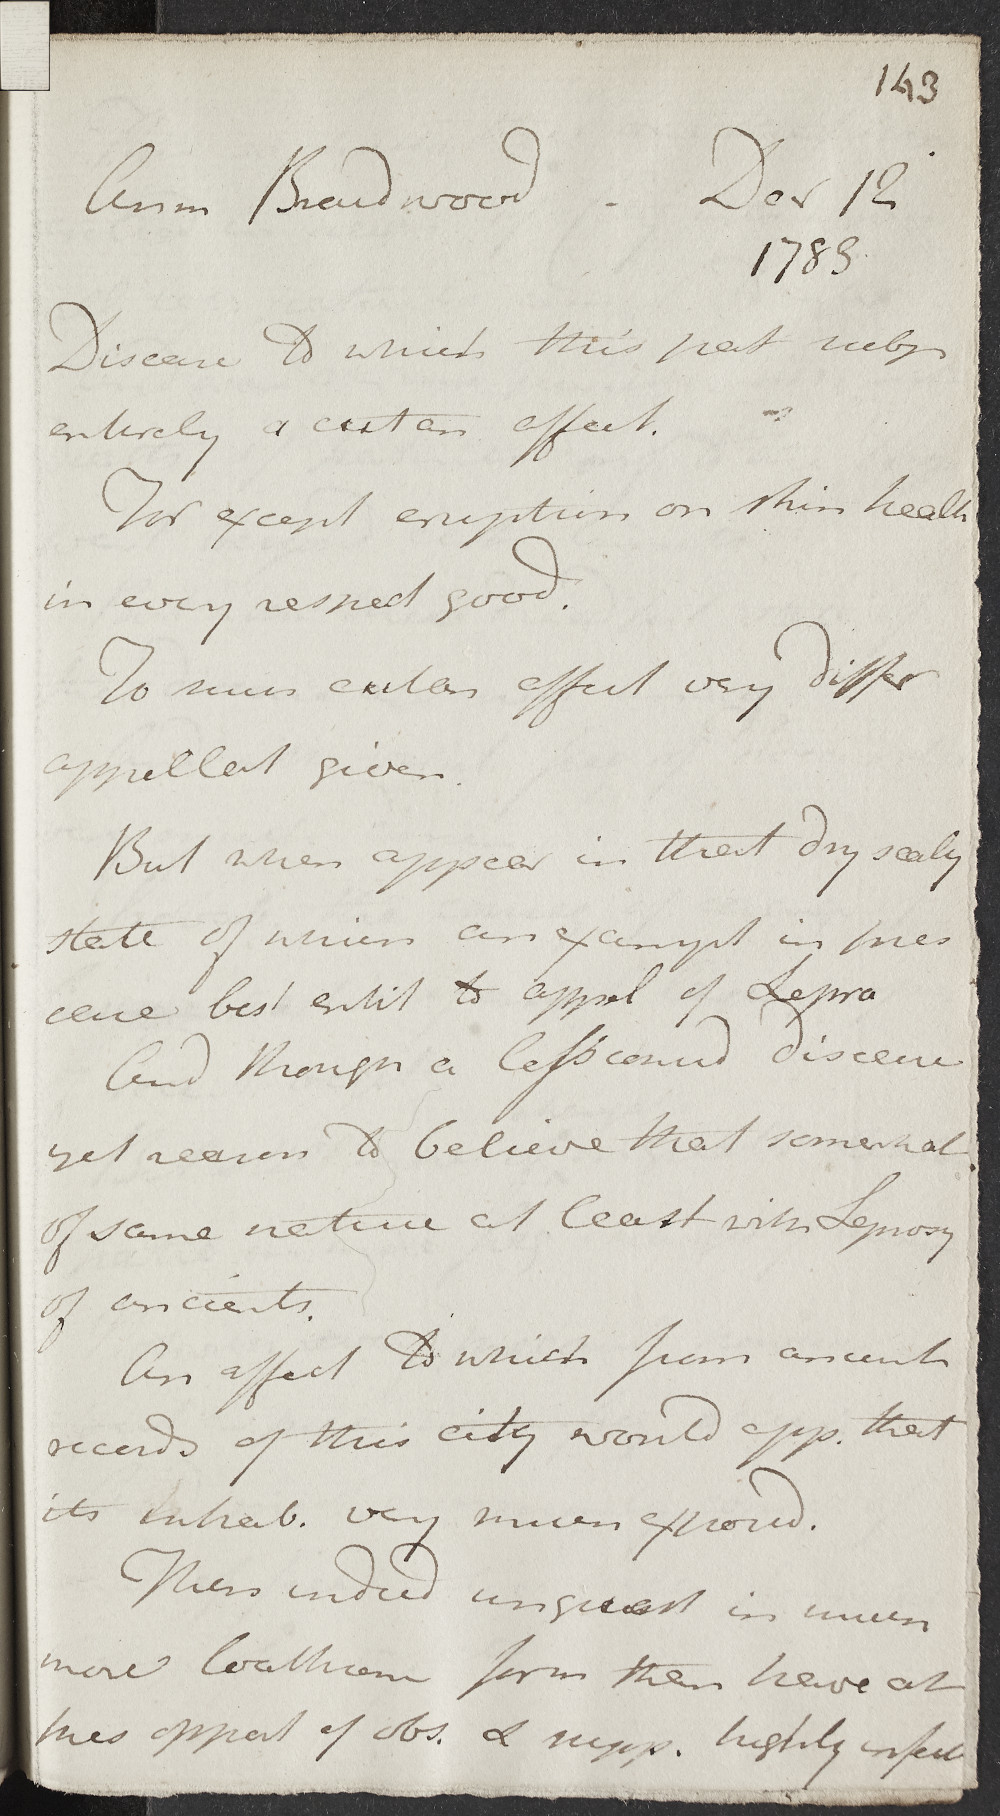 143
Ann Braidwood - Der 12
1783
Disease to which this pat subj
entirely a cutan affect.
For except eruption on skin health
in every respect good.
To such cutan affect very differ
appellat given.
But when appear in that dry scaly
state of which an exampl in pres
case best entit to appel of Lepra
And though a less comd disease
yet reason to believe that somewhat
of same nature at least with Leprosy
of ancients.
An affect to which from ancient
records of this city would app. that
its inhab. very much exposed.
Then indeed in much
more loathsom form than have at
pres opport of obs. & supp. highly infect